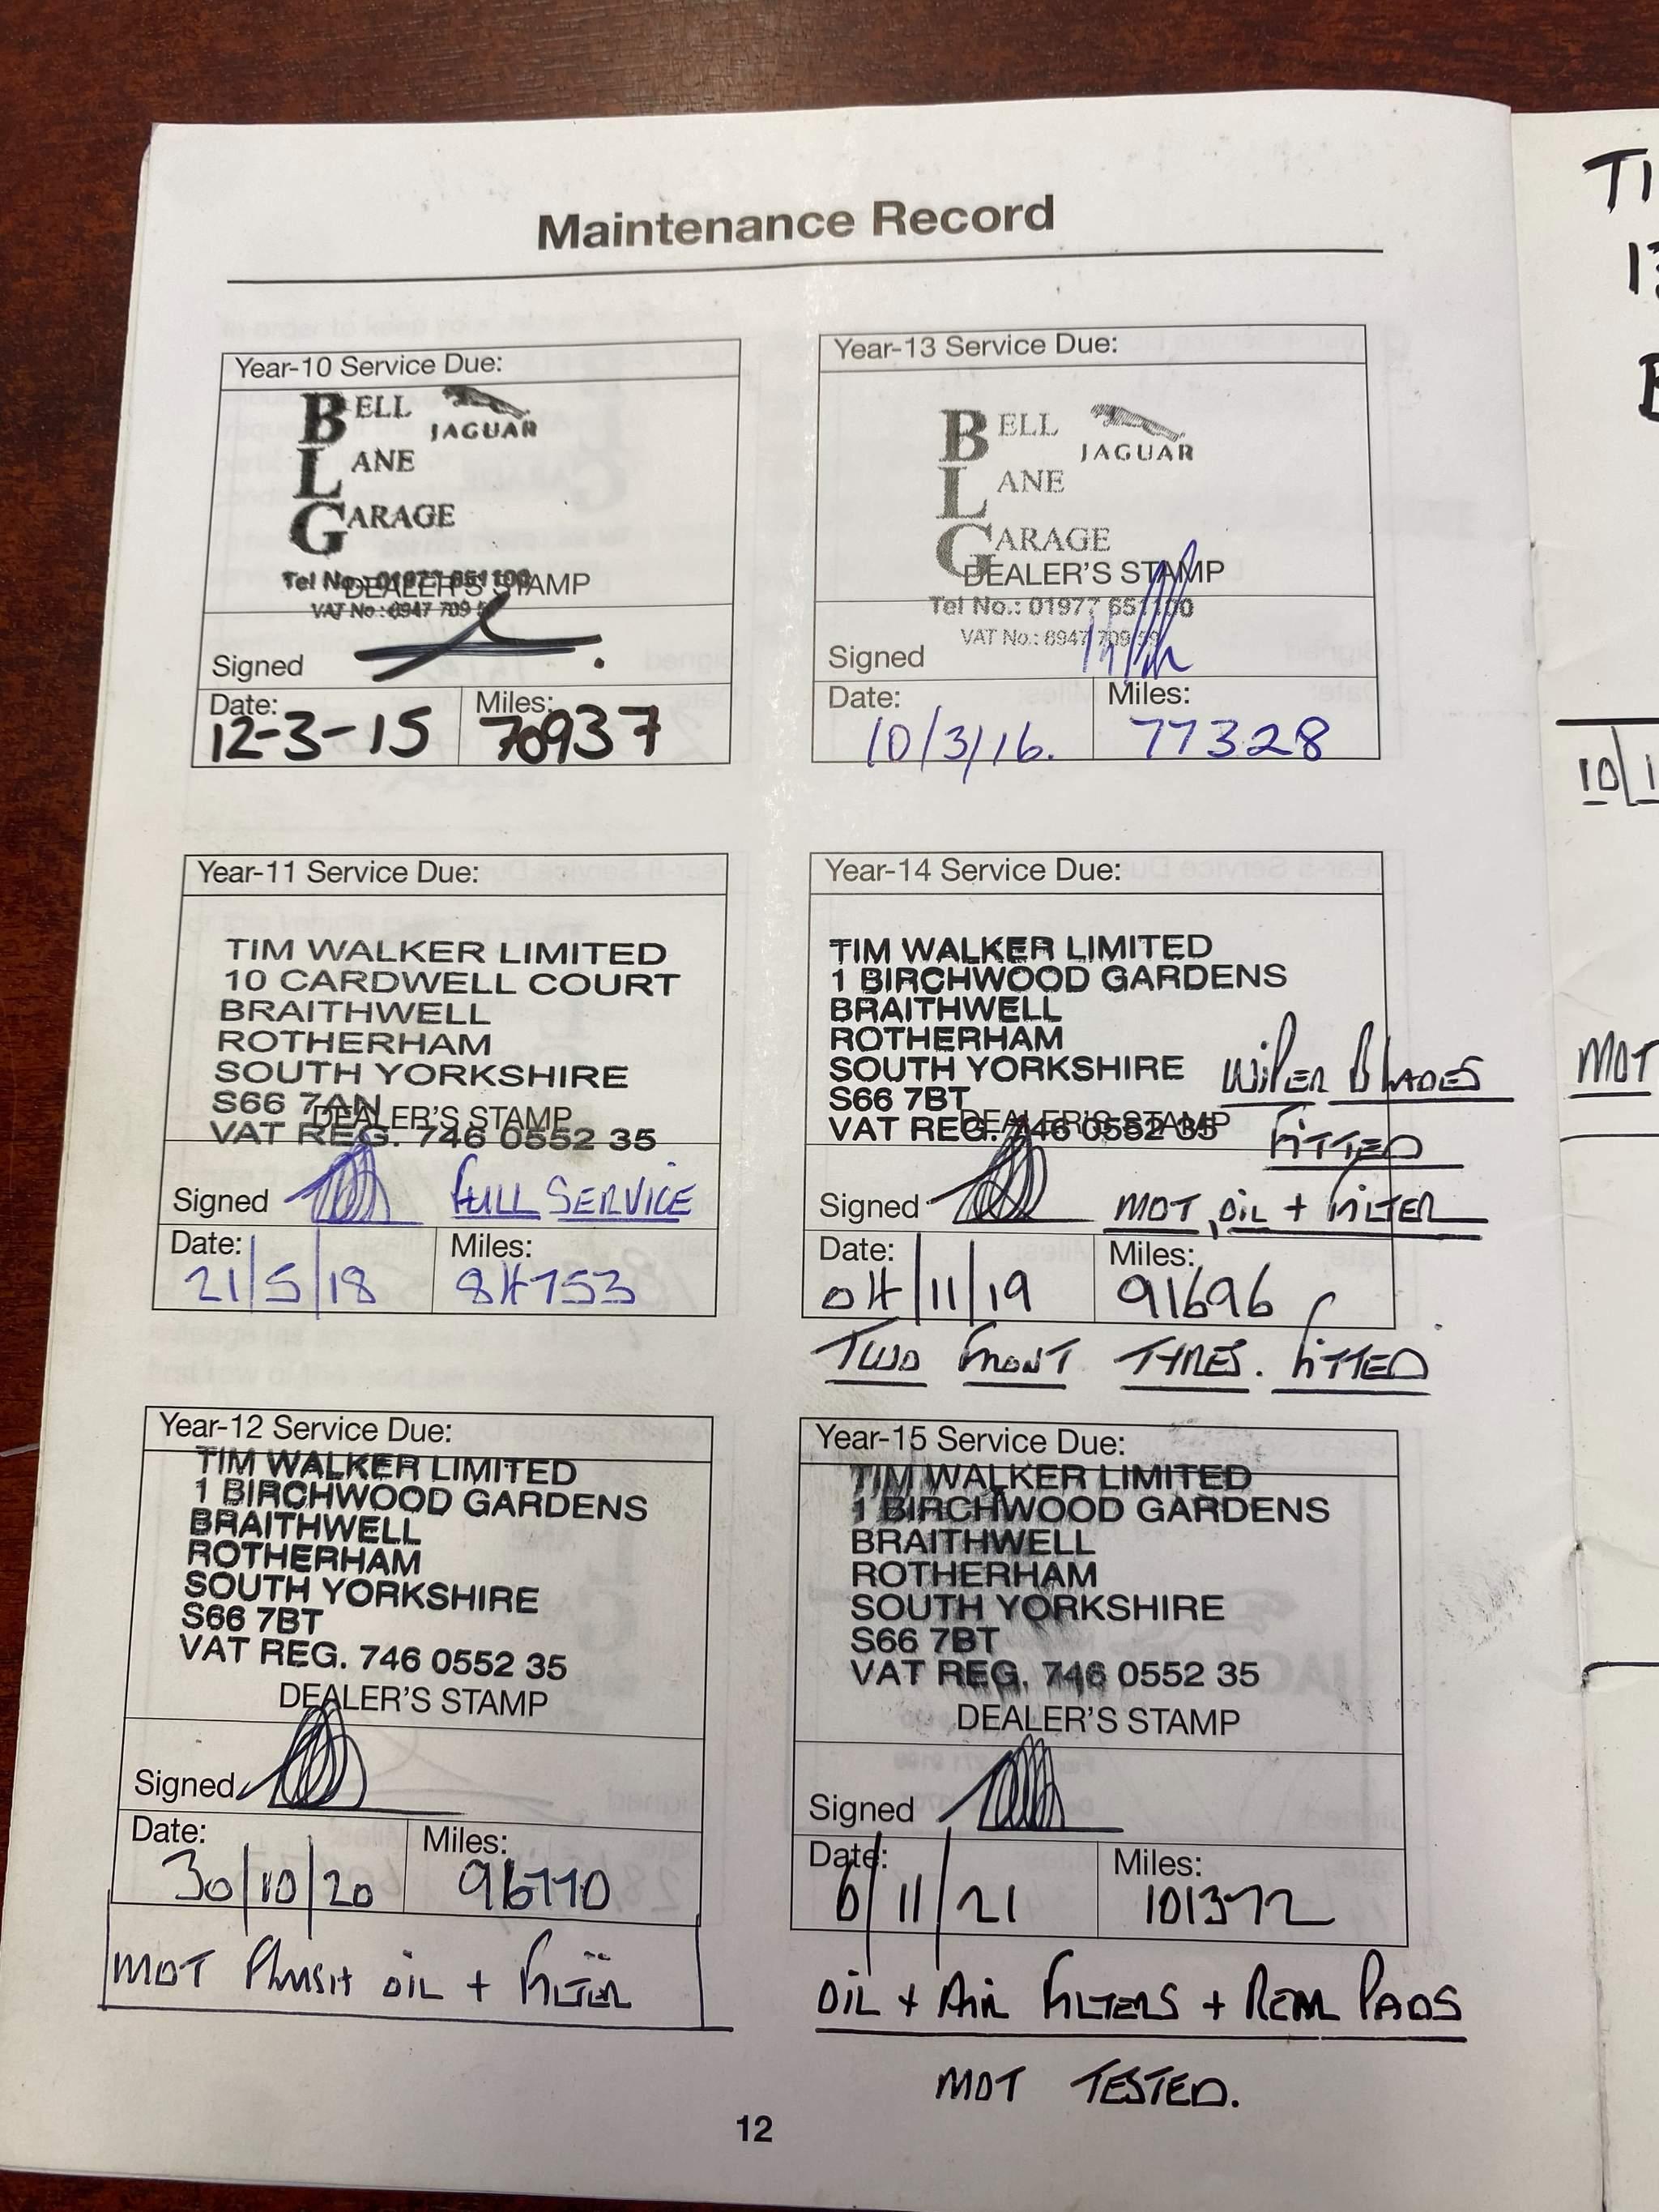 Maintenance Record
Year-10 Service Due:
BELL
JAGUAR
LANE
GARAGE
Tel No.: 01977 651100
DEALER'S STAMP
VAT No.: 8947 709
Signed
Date:
12-3-15
Miles:
70937
Year-13 Service Due:
BELL
JAGUAR
LANE
GARAGE
DEALER'S STAMP
Tel No.: 01977 651100
VAT No.: 8947 709 59
Signed
Date:
10/3/16.
Miles:
77328
Year-11 Service Due:
TIM WALKER LIMITED
10 CARDWELL COURT
BRAITHWELL
ROTHERHAM
SOUTH YORKSHIRE
S66 7AN
DEALER'S STAMP
VAT REG. 746 0552 35
Signed
FULL SERVICE
Date:
21/5/18
Miles:
84753
Year-14 Service Due:
TIM WALKER LIMITED
1 BIRCHWOOD GARDENS
BRAITHWELL
ROTHERHAM
SOUTH YORKSHIRE
S66 7BT
DEALER'S STAMP
VAT REG. 746 0552 35
WIPER BLADES
FITTED
Signed
MOT, OIL + FILTER
Date:
04/11/19
Miles:
91696
TWO FRONT TYRES. FITTED
Year-12 Service Due:
TIM WALKER LIMITED
1 BIRCHWOOD GARDENS
BRAITHWELL
ROTHERHAM
SOUTH YORKSHIRE
S66 7BT
VAT REG. 746 0552 35
DEALER'S STAMP
Signed
Date:
30/10/20
Miles:
96770
MOT FLUSH OIL + FILTER
Year-15 Service Due:
TIM WALKER LIMITED
1 BIRCHWOOD GARDENS
BRAITHWELL
ROTHERHAM
SOUTH YORKSHIRE
S66 7BT
VAT REG. 746 0552 35
DEALER'S STAMP
Signed
Date:
6/11/21
Miles:
101372
OIL + AIR FILTERS + REAR PADS
MOT TESTED.
12
MOT